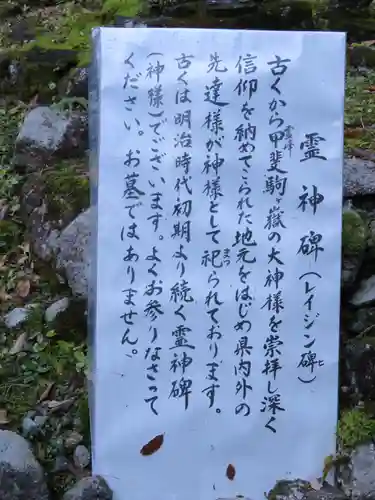 霊神碑(レイジン碑)
ヒ
古くから甲斐駒ヶ嶽の大神様を崇拝し深く
霊峰
信仰を納めてこられた地元をはじめ県内外の
先達様が神様として祀られております。
まつ
古くは明治時代初期より続く霊神碑
(神様)でございます。よくお参りなさって
ください。お墓ではありません。